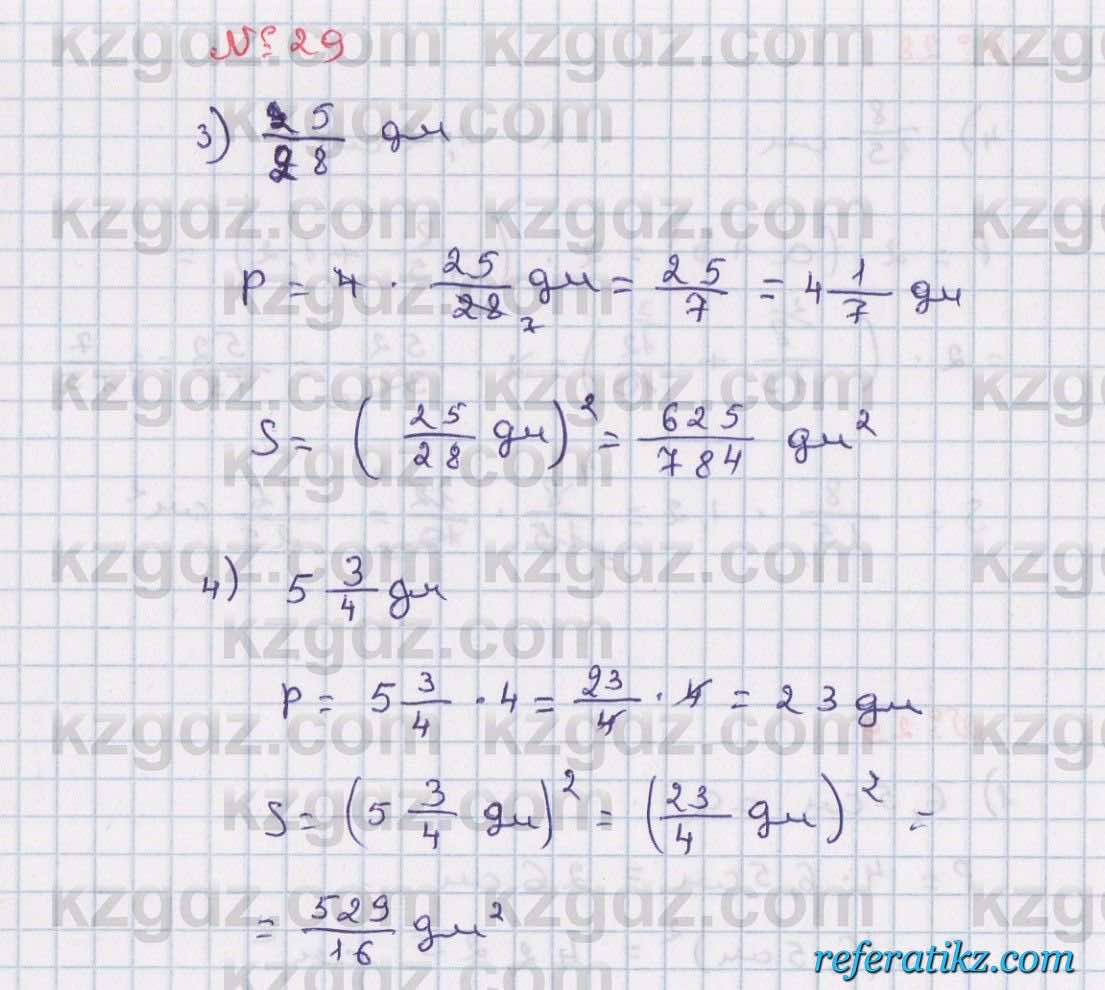 № 29
3) 25/28 дм
P = 4 · 25/28 7 дм = 25/7 = 4 1/7 дм
S = (25/28 дм)² = 625/784 дм²
4) 5 3/4 дм
P = 5 3/4 · 4 = 23/4 · 4 = 23 дм
S = (5 3/4 дм)² = (23/4 дм)² =
= 529/16 дм²
kzgdz.com
referatikz.com